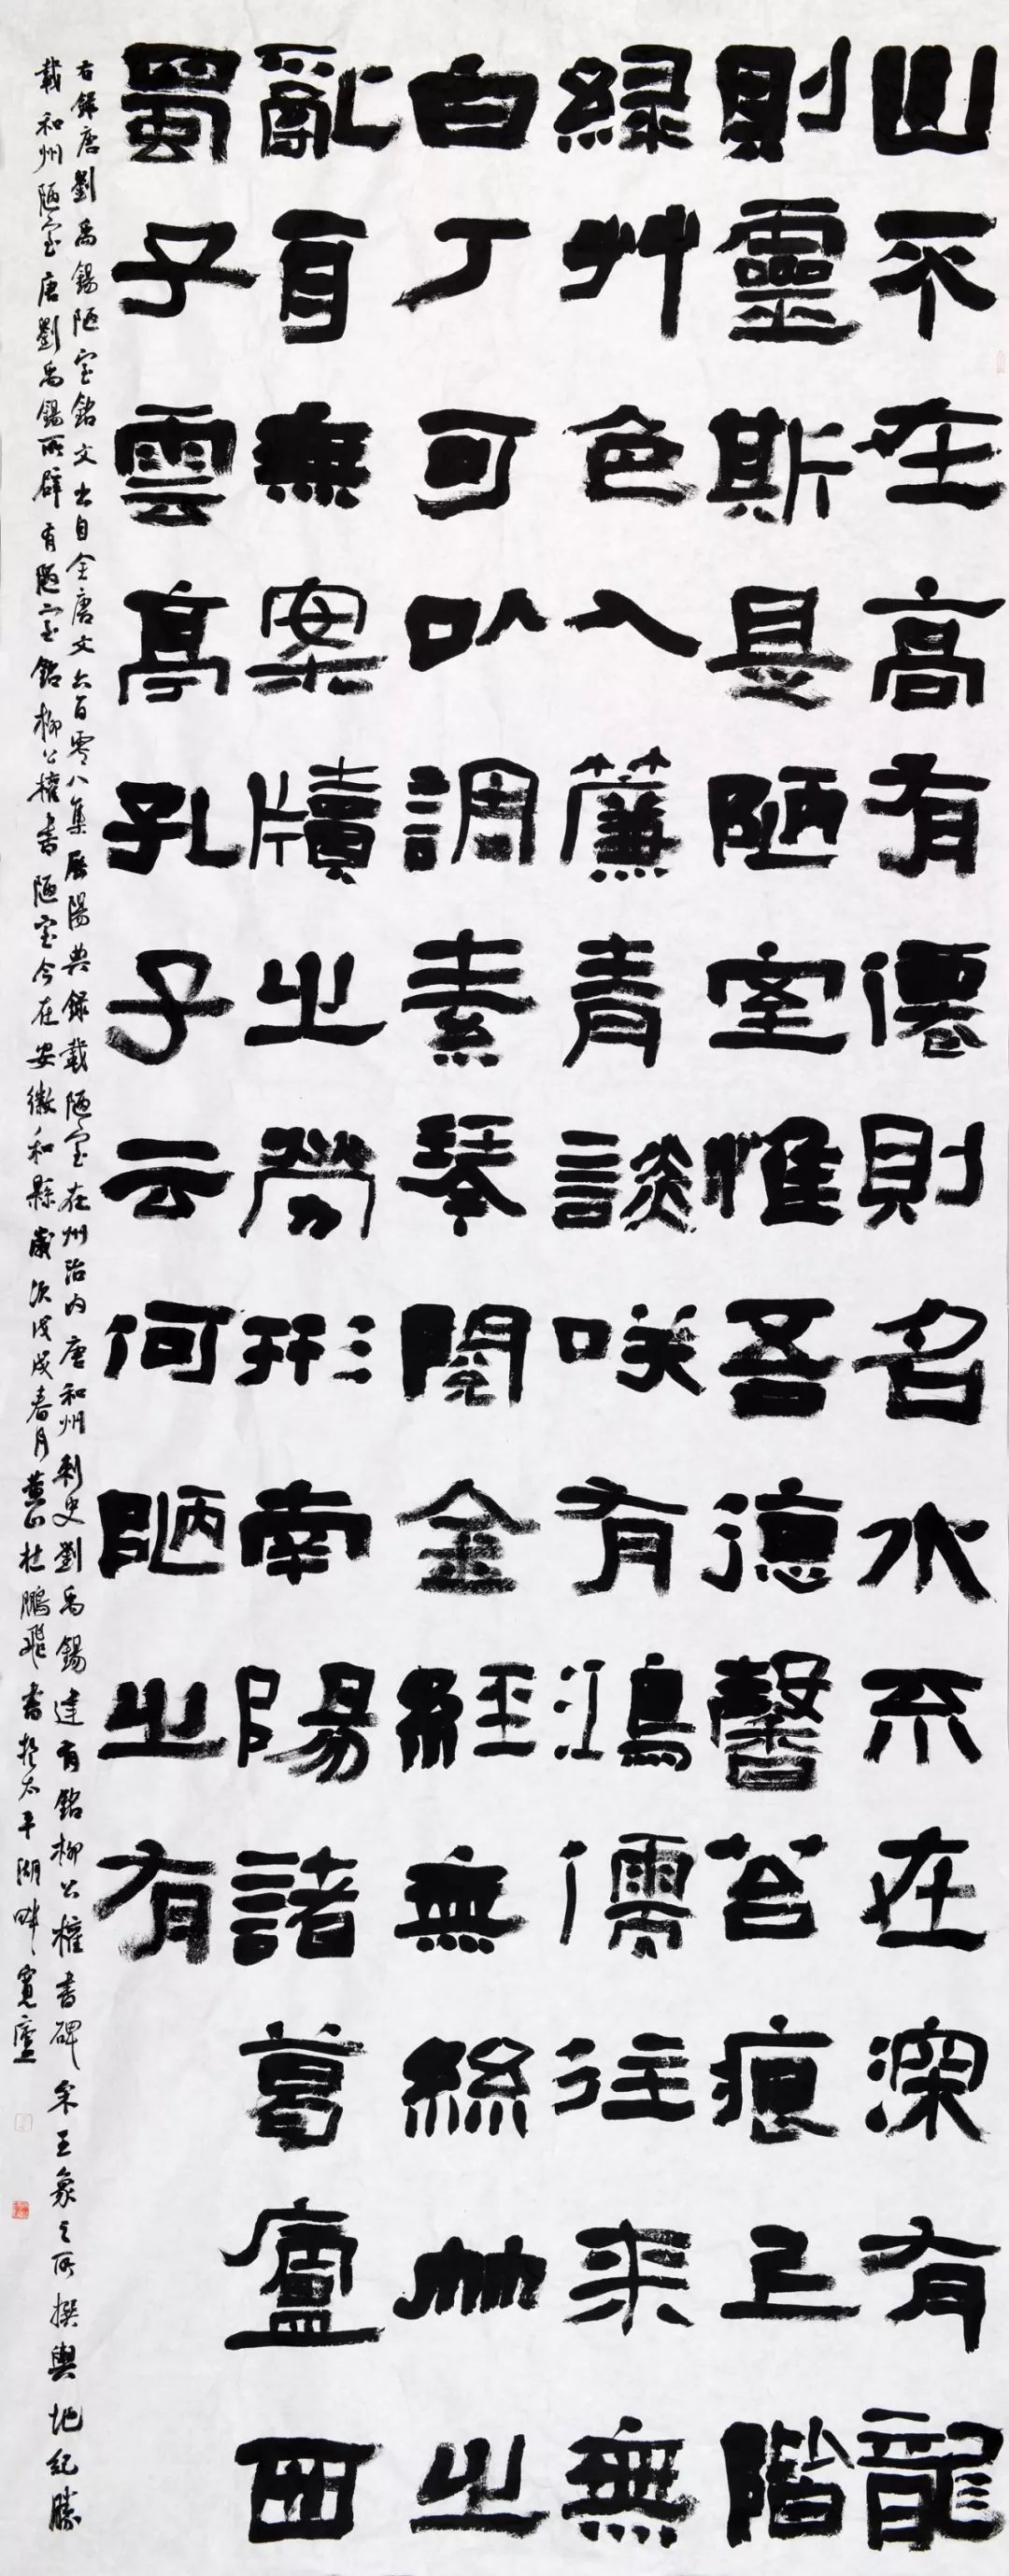 山不在高有僊則名水不在深有龍
則靈斯是陋室惟吾德馨苔痕上階
緑艸色入簾青談咲有鴻儒往来無
白丁可以調素琴閲金經無絲竹之
亂耳無案牘之勞形南陽諸葛廬西
蜀子雲亭孔子云何陋之有
右録唐劉禹錫陋室銘文出自全唐文六百零八集歷陽典録載陋室在州治内唐和州刺史劉禹錫建有銘柳公權書碑宋王象之所撰輿地紀勝
載和州陋室唐劉禹錫所辟有陋室銘柳公權書陋室今在安徽和縣歲次戊戌春月黄山杜鵬飛書於太平湖畔寬廬